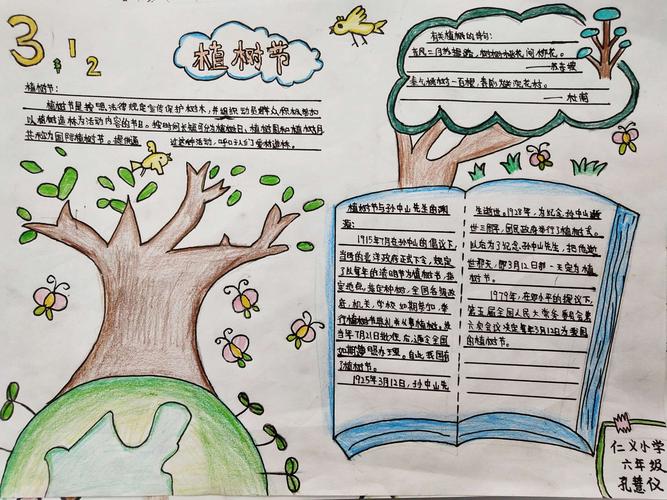 3.12
植树节
植树节:
植树节是按照法律规定宣传保护树木,并组织动员群众积极参加
以植树造林为活动内容的节日。按时间长短可分为植树日、植树周和植树月
共称为国际植树节。提倡通过这种活动,呼吁人们爱林造林。
有关植树的诗句:
栽桃
杜甫
植树节与孙中山先生的渊
源:
1915年7月在孙中山的倡议下,
当时的北洋政府正式下令,规定
了以每年的清明节为植树节,指
定地点,选择树种,全国各级政
府,机关,学校如期参加,举
行植树节典礼并从事植树。
当年7月21日批准后,通令全国
如期遵照办理。自此我国有
了植树节。
1925年3月12日,孙中山先
生逝世。1928年,为纪念孙中山逝
世三周年,国民政府举行了植树式。
以后为了纪念孙中山先生,把他逝
世那天,即3月12日那一天定为植
树节。
1979年,在邓小平的提议下,
第五届全国人民大会常委会第
六次会议决定每年3月12日为我国
的植树节。
仁义小学
六年级
孔慧仪